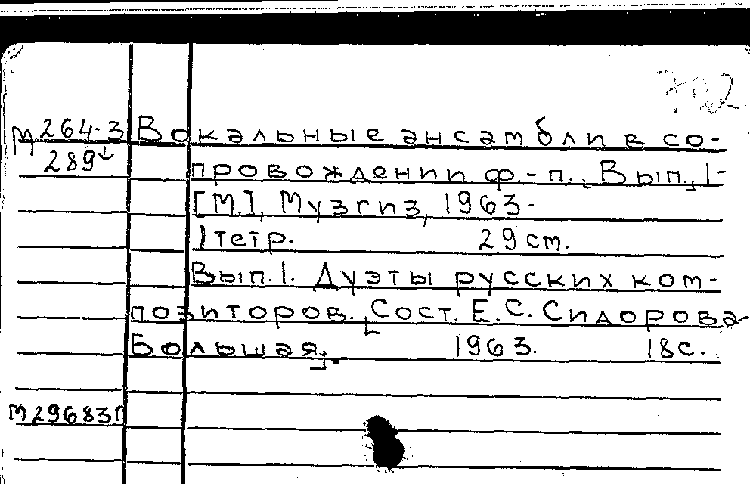 702
М 264-3 Вокальные ансамбли в со-
289 провождении ф.-п., Вып. 1-
[М.], Музгиз, 1963-
1 тетр. 29 cm.
Вып. 1. Дуэты русских ком-
позиторов. [Сост. Е. С. Сидорова-
Большая]. 1963. 18 с.
М29683П